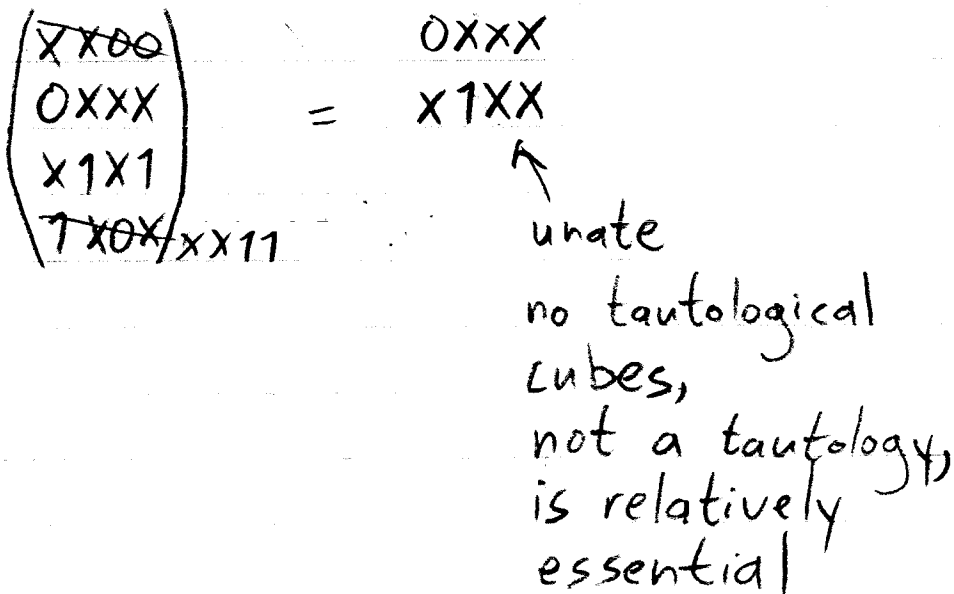 XX00 0XXX
0XXX = X1XX
X1X1
1X0X XX11
unate
no tautological
cubes,
not a tautology,
is relatively
essential